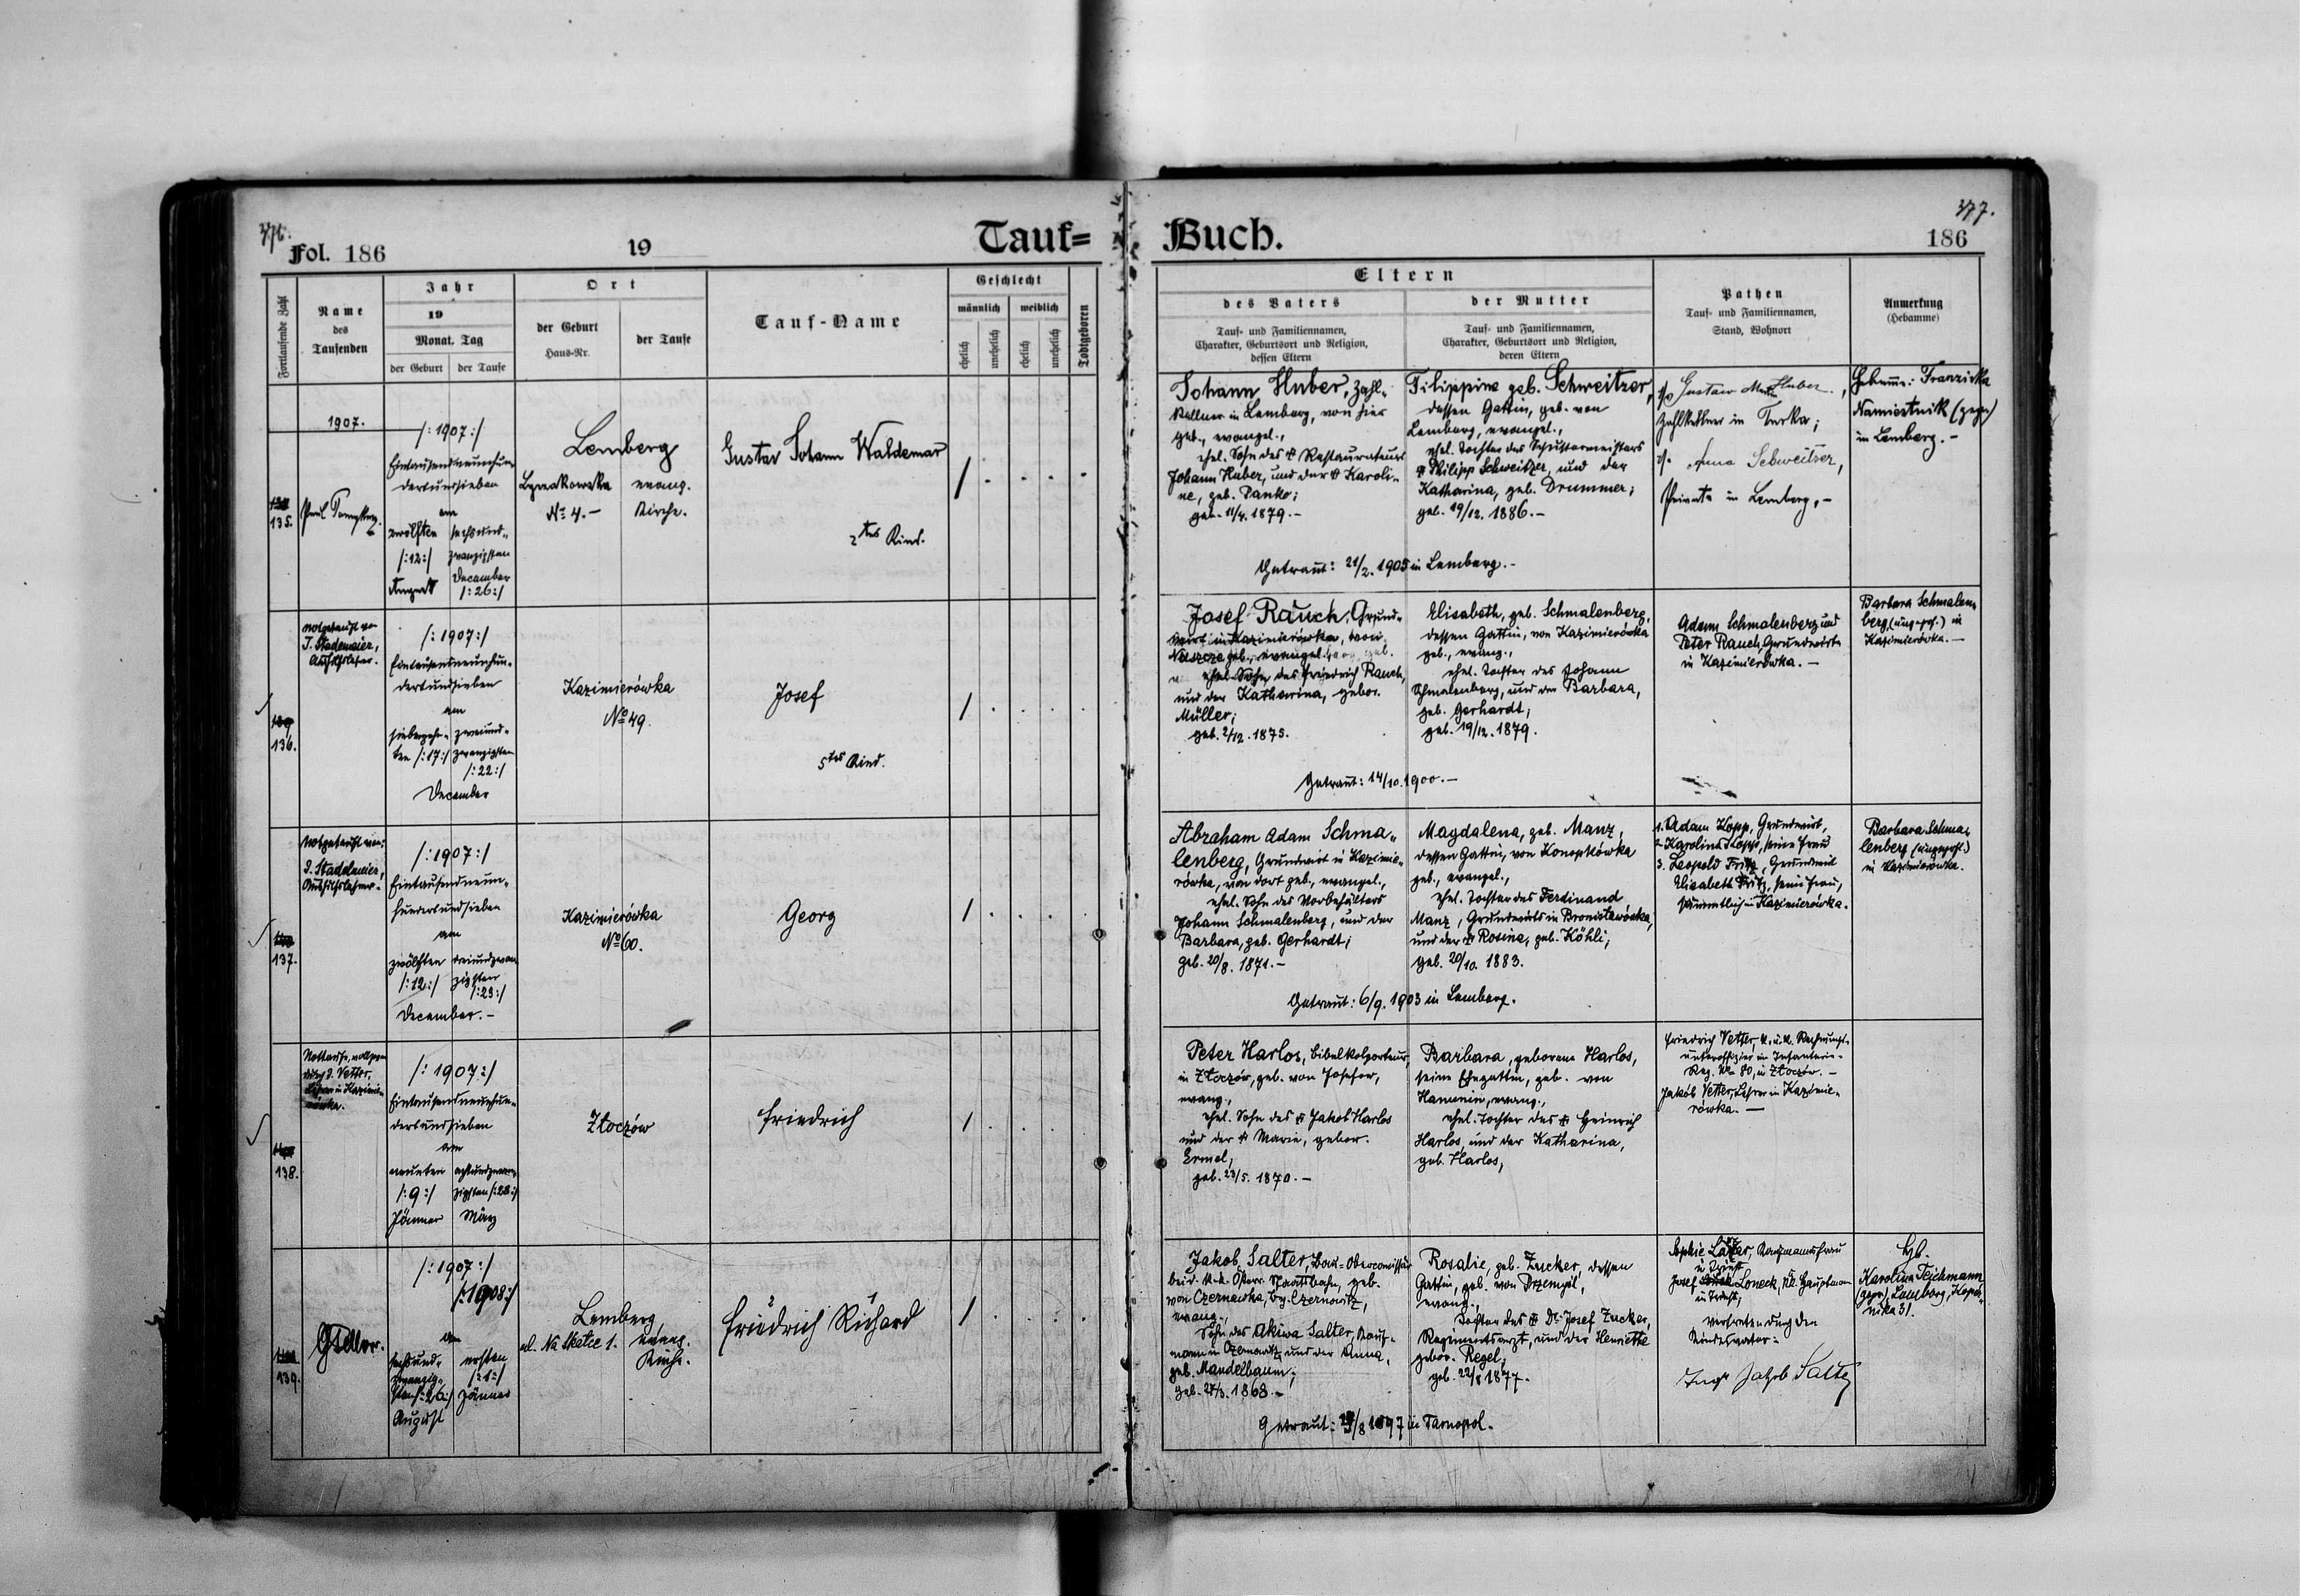 376.
Fol. 186
19
Tauf=
Fortlaufende Zahl
Name
des
Taufenden
Jahr
19
Monat, Tag
der Geburt
der Taufe
Ort
der Geburt
Haus-Nr.
der Taufe
Tauf-Name
Geschlecht
männlich
weiblich
ehelich
unehelich
ehelich
unehelich
Todtgeboren
1907.
135.
Paul
/:1907:/
Eintausendneunhun-
dertundsieben
am
zwölften
/:12:/
August
sechsund-
zwanzigsten
December
/:26:/
Lemberg
Łyczakowska
№ 4.-
evang.
Kirche.
Gustav Johann Waldemar
2tes Kind.
136.
Notgetauft von
J. Stademeier,
Aushilfslehrer.
/:1907:/
Eintausendneunhun-
dertundsieben
am
siebzehn-
ten /:17:/
zweiund-
zwanzigsten
/:22:/
December
Kazimierówka
№ 49.
Josef
5tes Kind.
137.
Notgetauft von:
J. Stademeier,
Aushilfslehrer.
/:1907:/
Eintausendneun-
hundertundsieben
am
zwölften
/:12:/
dreiundzwan-
zigsten
/:23:/
December.-
Kazimierówka
№ 60.
Georg
138.
Nottaufe, vollzogen
durch J. Vetter,
Lehrer in Kazimie-
rówka.
/:1907:/
Eintausendneunhun-
dertundsieben
am
neunten
/:9:/
Jänner
achtundzwan-
zigsten /:28:/
März
Złoczów
Friedrich
139.
/:1907:/
/:1908:/
am
sechsund-
zwanzig-
sten /:26:/
August
ersten
/:1:/
Jänner
Lemberg,
ul. Na Skałce 1.
evang.
Kirche.
2 1
Friedrich Richard
Buch.
377.
186
Eltern
des Vaters
Tauf- und Familiennamen,
Charakter, Geburtsort und Religion,
dessen Eltern
der Mutter
Tauf- und Familiennamen,
Charakter, Geburtsort und Religion,
deren Eltern
Pathen
Tauf- und Familiennamen,
Stand, Wohnort
Anmerkung
(Hebamme)
Johann Huber, Zahl-
kellner in Lemberg, von hier
geb., evangel.,
ehel. Sohn des † Restaurateurs
Johann Huber, und der † Karoli-
ne, geb. Panko;
geb. 11/4. 1879.-
Filippine geb. Schweitzer,
dessen Gattin, geb. von
Lemberg, evangel.,
ehel. Tochter des Schustermeisters
† Philipp Schweitzer, und der
Katharina, geb. Drummer;
geb. 19/12. 1886.-
Getraut: 21/2. 1905 in Lemberg.-
Gustav Huber,
Zahlkellner in Turka;
Anna Schweitzer,
Private in Lemberg.-
Hebamme: Franziska
Namiestnik (gepr.)
in Lemberg.-
Josef Rauch, Grund-
wirt in Kazimierówka, von
geb., evangel.
ehel. Sohn des Friedrich Rauch,
und der Katharina, gebor.
Müller;
geb. 2/12. 1875.
Elisabeth, geb. Schmalenberg,
dessen Gattin, von Kazimierówka
geb., evang.,
ehel. Tochter des Johann
Schmalenberg, und der Barbara,
geb. Gerhardt;
geb. 19/12. 1879.
Getraut: 14/10. 1900.-
Adam Schmalenberg und
Peter Rauch, Grundwirte
in Kazimierówka.-
Barbara Schmalen-
berg, (ungepr.) in
Kazimierówka.-
Abraham Adam Schma-
lenberg, Grundwirt in Kazimie-
rówka, von dort geb., evangel.,
ehel. Sohn des Vorbehälters
Johann Schmalenberg, und der
Barbara, geb. Gerhardt;
geb. 20/8. 1871.-
Magdalena, geb. Manz,
dessen Gattin, von Konoptkówka
geb., evangel.,
ehel. Tochter des Ferdinand
Manz, Grundwirts in Bronisławówka,
und der † Rosina, geb. Köhli;
geb. 20/10. 1883.
Getraut: 6/9. 1903 in Lemberg.
1. Adam Kopp, Grundwirt,
2. Karolina Kopp, seine Frau
3. Leopold Fritz, Grundwirt
Elisabeth Fritz, seine Frau,
sämmtlich in Kazimierówka.
Barbara Schma-
lenberg (ungepr.)
in Kazimierówka.
Peter Harlos, Bibelkolporteur,
in Złoczów, geb. von Josefow,
evang.,
ehel. Sohn des † Jakob Harlos
und der † Marie, gebor.
Ermel,
geb. 23/5. 1870.-
Barbara, geborene Harlos,
seine Ehegattin, geb. von
Hanunin, evang.,
ehel. Tochter des † Heinrich
Harlos, und der Katharina,
geb. Harlos,
Friedrich Vetter, k. u. k. Rechnungs-
unteroffizier im Infanterie-
Reg. № 80, in Złoczów.-
Jakob Vetter, Lehrer in Kazimie-
rówka.-
Jakob Salter, Bau-Obercomissär
bei d. k. k. Österr. Staatsbahn, geb.
von Czernawka, bz. Czernowitz,
evang.,
Sohn des Akiwa Salter, Kauf-
mann in Czernowitz, und der Anna,
geb. Mandelbaum;
geb. 27/3. 1868.-
Rosalie, geb. Zucker, dessen
Gattin, geb. von Przemyśl,
evang.,
Tochter des † Dr. Josef Zucker,
Regimentsarzt, und der Henriette
gebor. Regel;
geb. 22/8 1877.-
Getraut: /8 1897 in Tarnopol.
Sophie Kaufmannsfrau
in Triest
Josef Loneck, k.k. Hauptmann
in Triest,
vertreten durch den
Kindesvater:
Ingr Jakob Salter
Hb.
Karolina Teichmann
(gepr.) Lemberg, Koper-
nika 31.